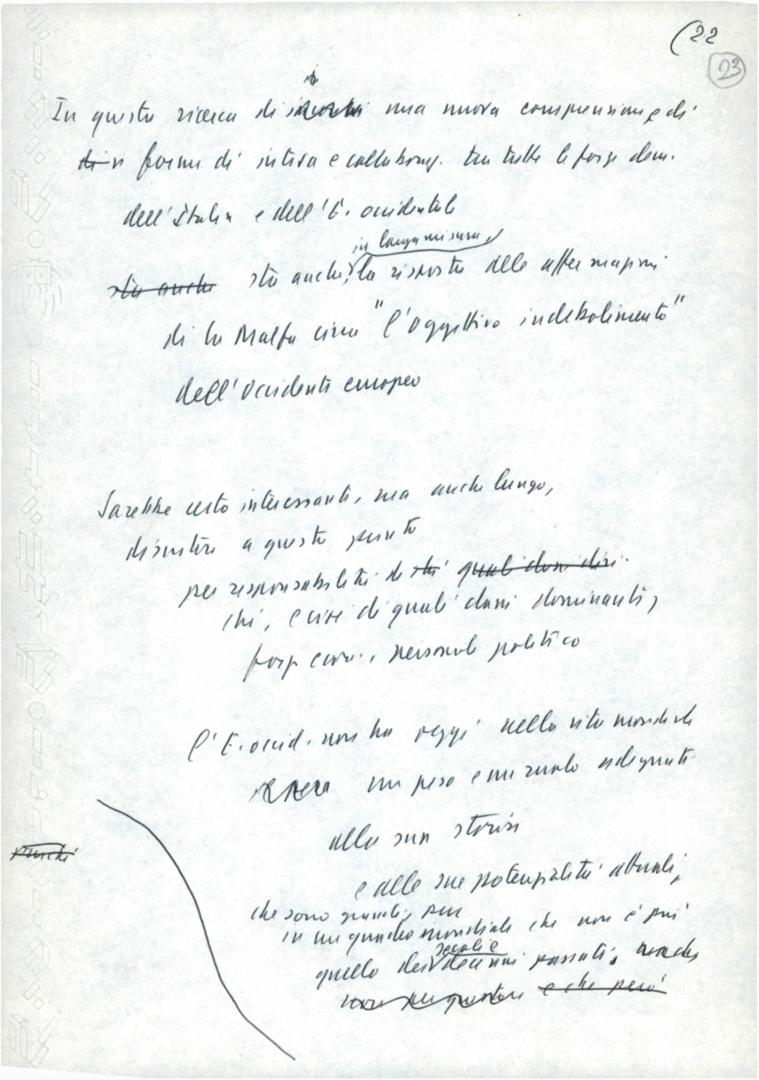 (22
23
In questa ricerca di una nuova comprensione e di
di n forme di intesa e collaboraz. tra tutte le forze dem.
dell'Italia e dell'E. occidentale
in larga misura,
sta anche sta anche, la risposta alle affermazioni
di La Malfa circa "l'oggettivo indebolimento"
dell'Occidente europeo
Sarebbe certo interessante, ma anche lungo,
discutere a questo punto
per responsabilità di chi quali classi diri.
chi, e cioè di quali classi dominanti,
forze econ., personale politico
l'E. occid. non ha oggi nella vita mondiale
un peso e un ruolo adeguati
alla sua storia
e alle sue potenzialità attuali,
che sono grandi, pur
in un quadro mondiale che non è più
secoli e
quello dei decenni passati,
e che però